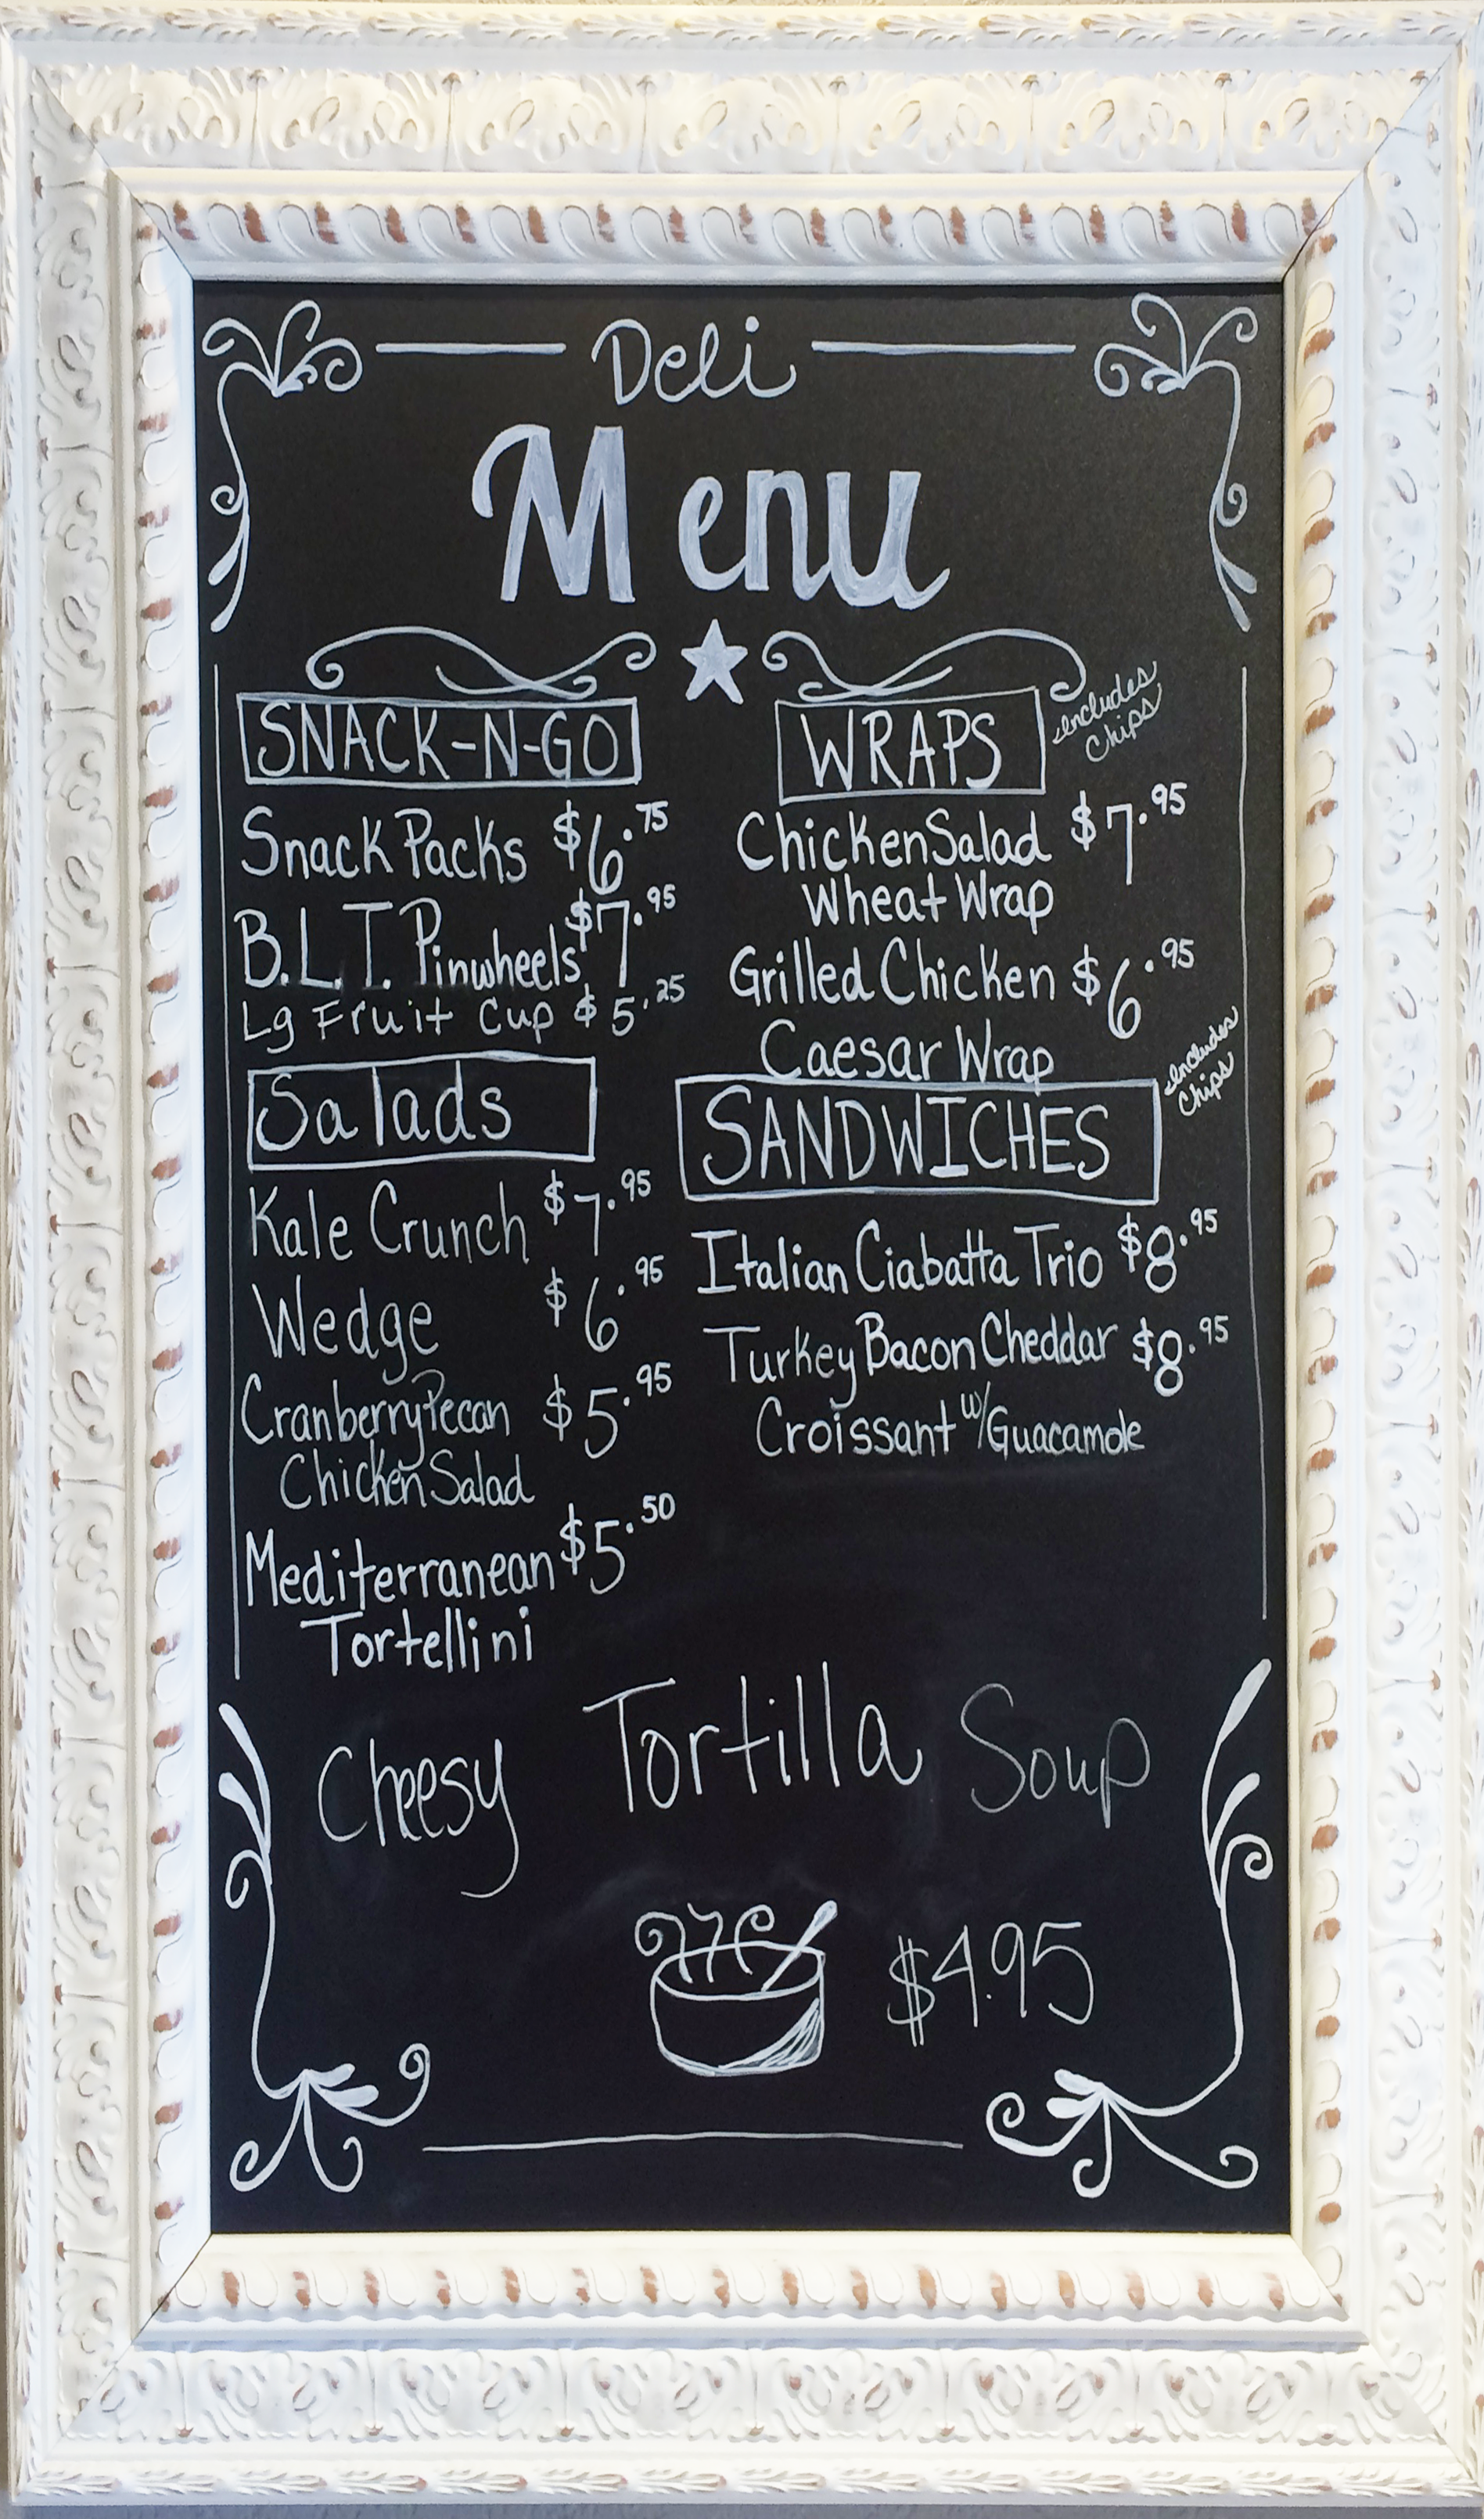 Deli
Menu
SNACK-N-GO
Snack Packs $6.75
B.L.T. Pinwheels $7.95
Lg Fruit Cup $5.25
Salads
Kale Crunch $7.95
Wedge $6.95
Cranberry Pecan $5.95
Chicken Salad
Mediterranean $5.50
Tortellini
WRAPS
includes
chips
Chicken Salad $7.95
Wheat Wrap
Grilled Chicken $6.95
Caesar Wrap
SANDWICHES
includes
chips
Italian Ciabatta Trio $8.95
Turkey Bacon Cheddar $8.95
Croissant w/Guacamole
Cheesy Tortilla Soup
$4.95